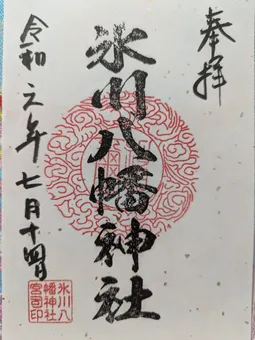 奉拝
氷川八幡神社
令和六年七月十四日
氷川八
幡神社
宮司印